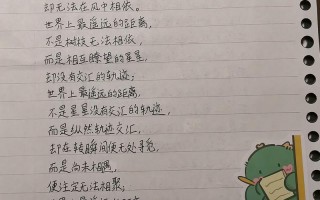 却无法在风中相依。
世界上最遥远的距离,
不是树枝无法相依,
而是相互瞭望的星星,
却没有交汇的轨迹;
世界上最遥远的距离,
不是星星没有交汇的轨迹,
而是纵然轨迹交汇,
却在转瞬间便无处寻觅,
而是尚未相遇,
便注定无法相聚;